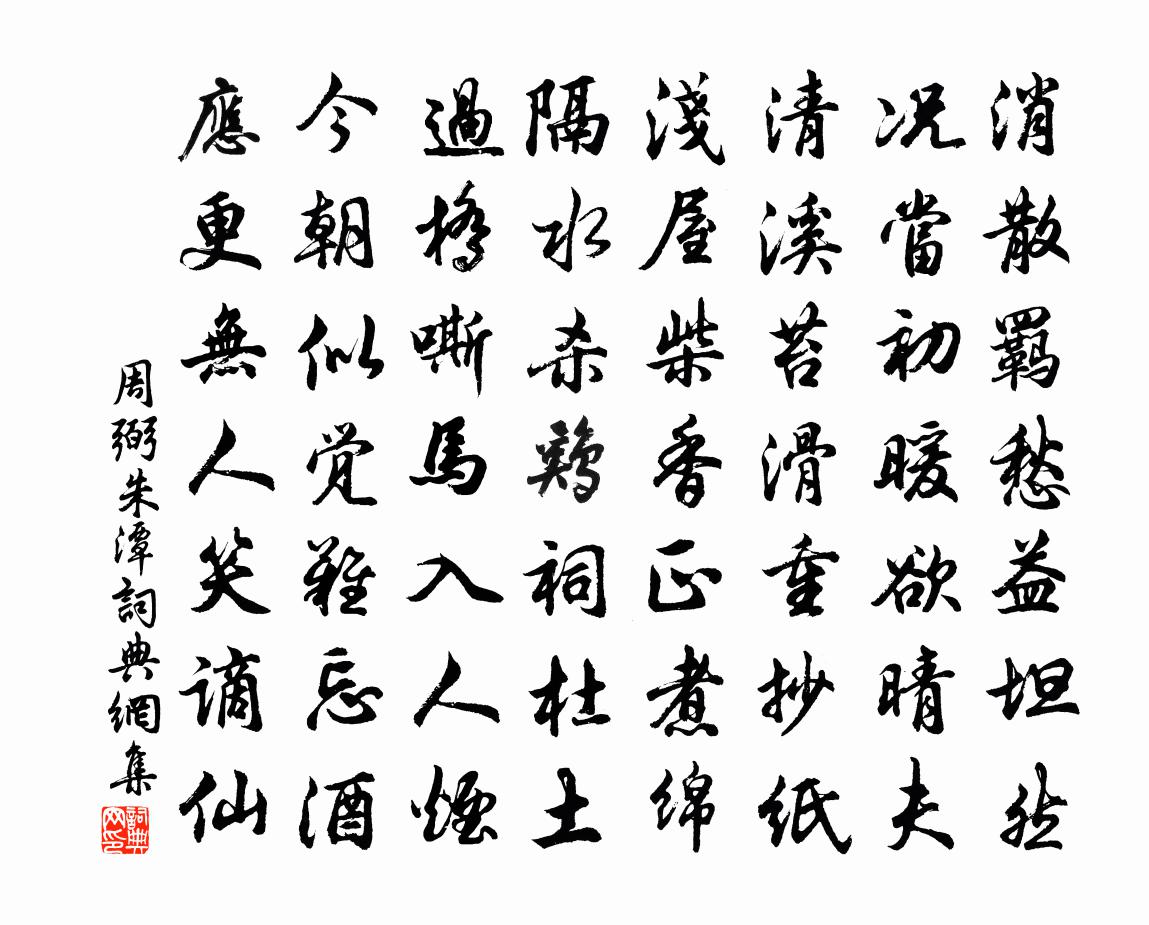 消散羇愁益坦然
况當初暖欲晴夫
清溪苔滑重抄紙
淺屋柴香正煮綿
隔水杀鷄祠杜土
過橋嘶馬入人煙
今朝似觉難忘酒
應更無人笑謫仙
周弼朱潭詞典網集
詞典网印